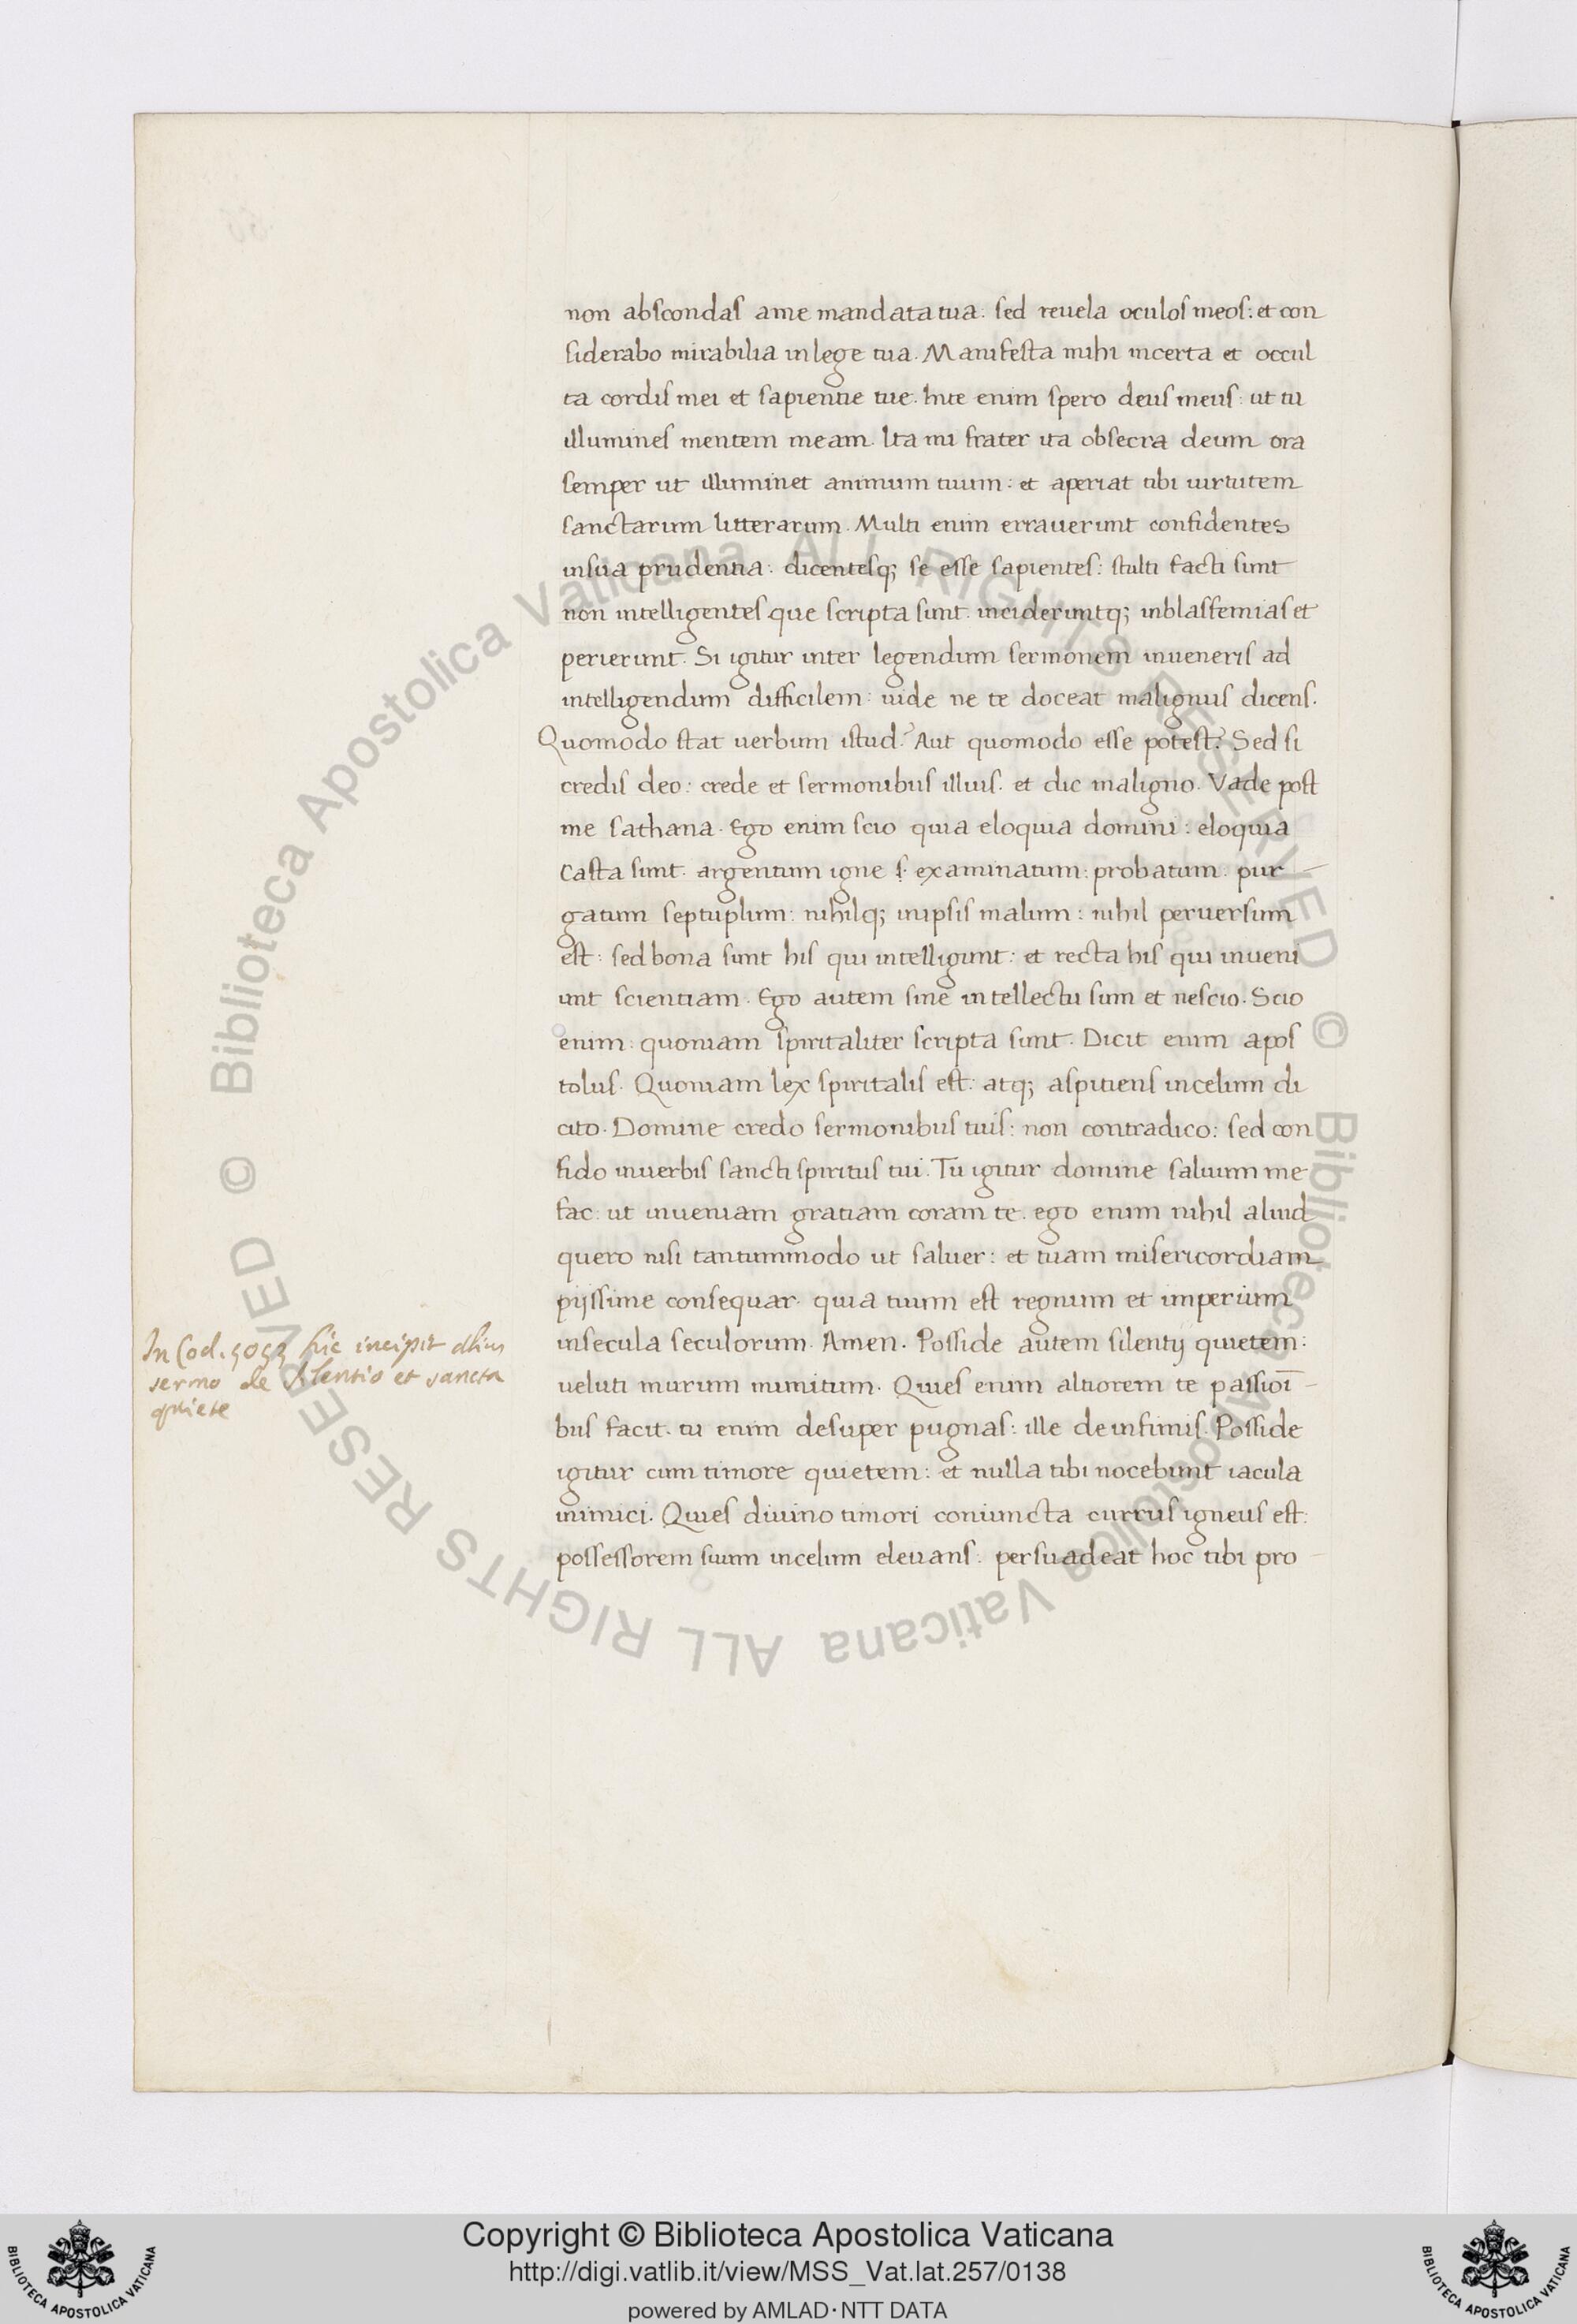 non abscondas ame mandata tua: sed reuela oculos meos: et con
siderabo mirabilia inlege tua. Manifesta mihi incerta et occul
ta cordis mei et sapientie tue. Inte enim spero deus meus: ut tu
illumines mentem meam. Ita mi frater ita obsecra deum ora
semper ut illuminet animum tuum: et aperiat tibi uirtutem
sanctarum litterarum. Multi enim errauerunt confidentes
insua prudentia: dicentesq; se esse sapientes: stulti facti sunt
non intelligentes que scripta sunt. incideruntq; inblasfemias et
perierunt. Si igitur inter legendum sermonem inueneris ad
intelligendum difficilem: uide ne te doceat malignus dicens.
Quomodo stat uerbum istud? Aut quomodo esse potest? Sed si
credis deo: crede et sermonibus illius. et dic maligno. Vade post
me sathana. Ego enim scio quia eloquia domini: eloquia
casta sunt. argentum igne examinatum: probatum. pur
gatum septuplum: nihilq; inipsis malum: nihil peruersum
est: sed bona sunt his qui intelligunt: et recta his qui inueni
unt scientiam. Ego autem sine intellectu sum et nescio. Scio
enim: quoniam spiritaliter scripta sunt. Dicit enim apos
tolus. Quoniam lex spiritalis est: atq; aspitiens incelum di
cito. Domine credo sermonibus tuis: non contradico: sed con
fido inuerbis sancti spiritus tui. Tu igitur domine saluum me
fac: ut inueniam gratiam coram te. ego enim nihil aliud
quero nisi tantummodo ut saluer: et tuam misericordiam
pijssime consequar. quia tuum est regnum et imperium
insecula seculorum. Amen. Posside autem silentij quietem:
ueluti murum munitum. Quies enim altiorem te passioī
bus facit. tu enim desuper pugnas: ille deinfimis. Posside
igitur cum timore quietem: et nulla tibi nocebunt iacula
inimici. Quies diuino timori coniuncta currus igneus est:
possessorem suum incelum eleuans. persuadeat hoc tibi pro
In Cod. hic incipit alius
sermo de silentio et sancta
quiete
© Biblioteca Apostolica Vaticana ALL RIGHTS RESERVED
© Biblioteca Apostolica Vaticana ALL RIGHTS RESERVED
Copyright © Biblioteca Apostolica Vaticana
http://digi.vatlib.it/view/MSS_Vat.lat.257/0138
powered by AMLAD·NTT DATA
BIBLIOTECA APOSTOLICA VATICANA
BIBLIOTECA APOSTOLICA VATICANA